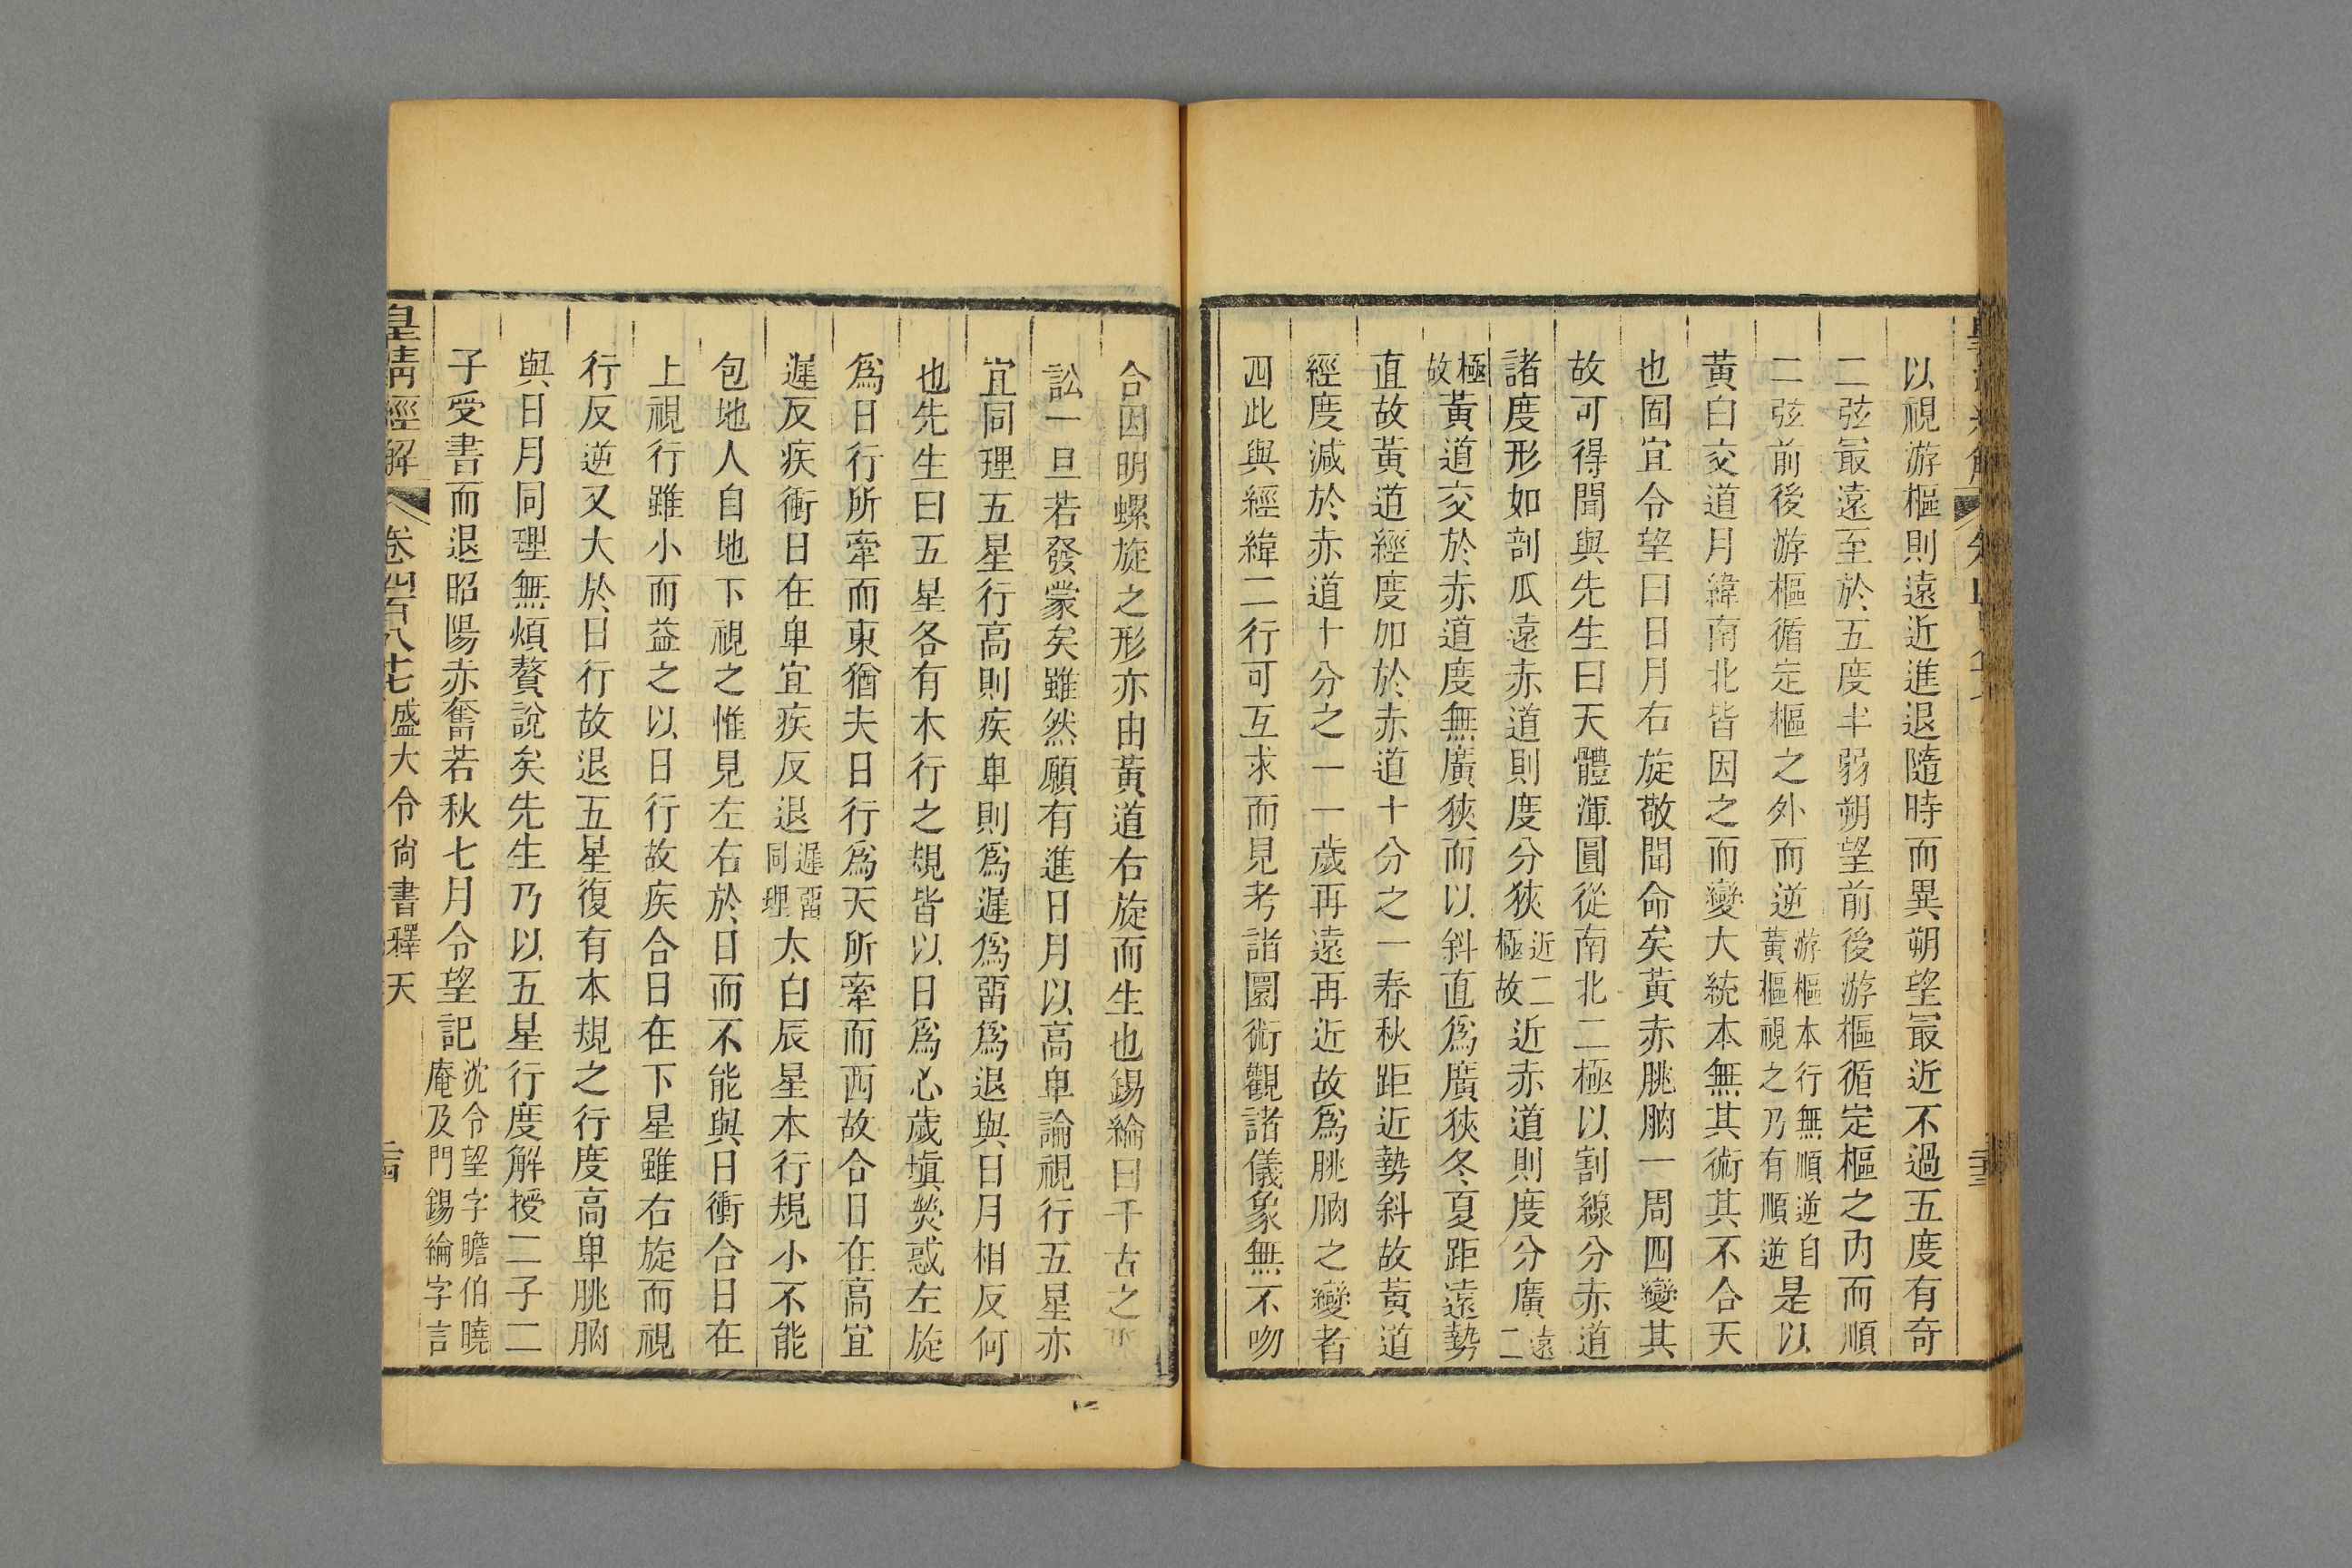 以視游樞則遠近進退隨時而異朔望最近不過五度有奇
二弦最遠至於五度半弱朔望前後游樞循定樞之內而順
二弦前後游樞循定樞之外而逆游樞本行無順逆自黃樞視之乃有順逆是以
黃白交道月緯南北皆因之而變大統本無其術其不合天
也固宜令望曰日月右旋敬聞命矣黃赤朓朒一周四變其
故可得聞與先生曰天體渾圓從南北二極以割線分赤道
諸度形如剖瓜遠赤道則度分狹近二極故近赤道則度分廣遠二
極故黃道交於赤道度無廣狹而以斜直爲廣狹冬夏距遠勢
直故黃道經度加於赤道十分之一春秋距近勢斜故黃道
經度減於赤道十分之一一歲再遠再近故爲朓朒之變者
四此與經緯二行可互求而見考諸圜術觀諸儀象無不吻
合因明螺旋之形亦由黃道右旋而生也錫綸曰千古之
訟一旦若發蒙矣雖然願有進日月以高卑論視行五星亦
宜同理五星行高則疾卑則爲遲爲畱爲退與日月相反何
也先生曰五星各有本行之規皆以日爲心歲塡熒惑左旋
爲日行所牽而東猶夫日行爲天所牽而西故合日在高宜
遲反疾衝日在卑宜疾反退遲畱同理太白辰星本行規小不能
包地人自地下視之惟見左右於日而不能與日衝合日在
上視行雖小而益之以日行故疾合日在下星雖右旋而視
行反逆又大於日行故退五星復有本規之行度高卑朓朒
與日月同理無煩贅說矣先生乃以五星行度解授二子二
子受書而退昭陽赤奮若秋七月令望記沈令望字瞻伯曉庵及門錫綸字言
皇清經解 卷四百八十七盛大令尚書釋天 二四